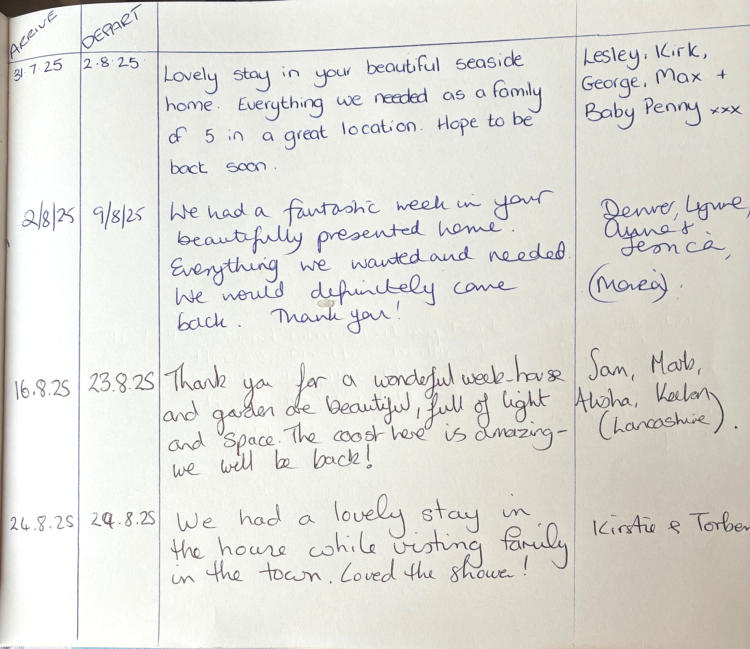 ARRIVE DEPART
31.7.25 2.8.25 Lovely stay in your beautiful seaside
home. Everything we needed as a family
of 5 in a great location. Hope to be
back soon.
Lesley, Kirk,
George, Max +
Baby Penny xxx
2/8/25 9/8/25 We had a fantastic week in your
beautifully presented home.
Everything we wanted and needed.
We would definitely come
back. Thank you!
Denver, Lynne,
&
16.8.25 23.8.25 Thank you for a wonderful week - house
and garden are beautiful, full of light
and space. The coast here is amazing -
we will be back!
Sam, Mark,
(Lancashire).
24.8.25 29.8.25 We had a lovely stay in
the house while visting family
in the town. Loved the shower!
Kirstie & Torben